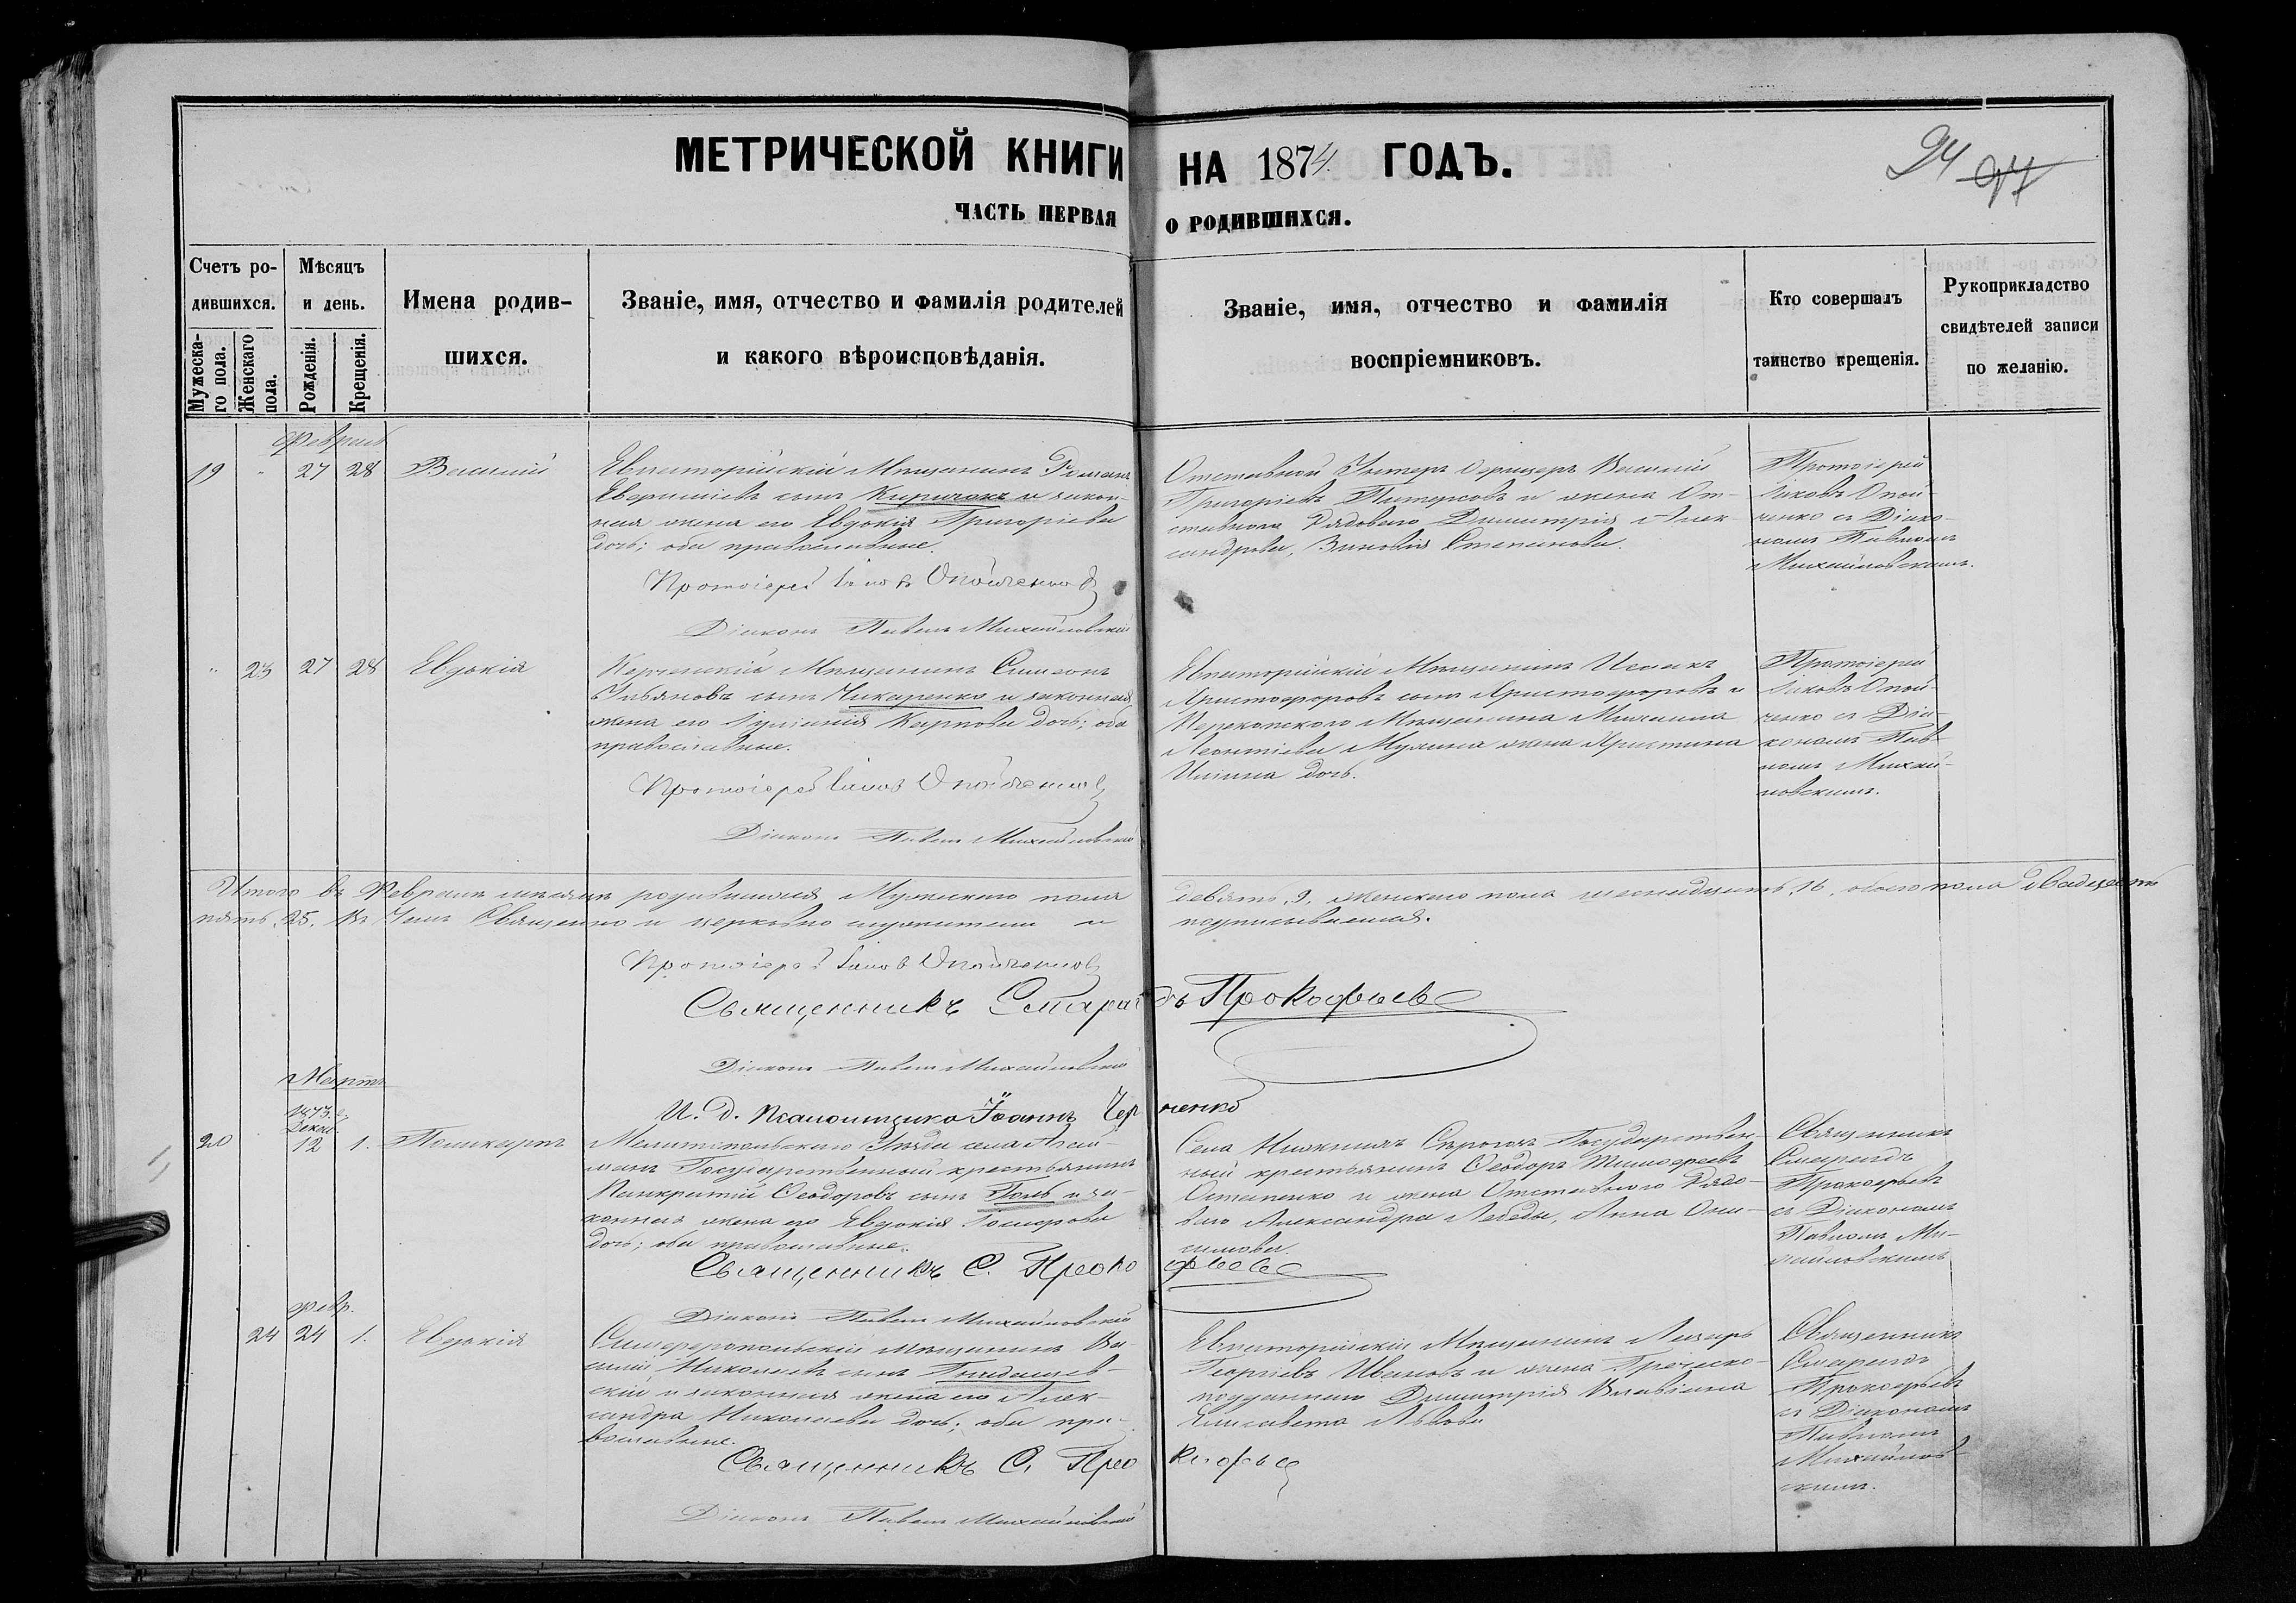 МЕТРИЧЕСКОЙ КНИГИ НА 1874 ГОДЪ.
94 97
ЧАСТЬ ПЕРВАЯ О РОДИВШИХСЯ.
Счетъ ро-
дившихся.
Мужеска-
го пола.
Женскаго
пола.
Мѣсяцъ
и день.
Рожденія.
Крещенія.
Имена родив-
шихся.
Званіе, имя, отчество и фамилія родителей
и какого вѣроисповѣданія.
Званіе, имя, отчество и фамилія
воспріемниковъ.
Кто совершалъ
таинство крещенія.
Рукоприкладство
свидѣтелей записи
по желанію.
Февраль
19 " 27 28 Василій
Евпаторійскій Мѣщанинъ Романъ
сынъ Киричокъ и закон-
ная жена его Евдокія Григоріева
дочь; оба православные.
Протоіерей Іаковъ Опойченко
Діаконъ Павелъ Михайловскій
Отставной Унтеръ Офицеръ Василій
Григоріевъ и жена От-
ставнаго Рядоваго Димитрія Алек-
сандрова, Зиновія Степанова.
Протоіерей
Іаковъ Опой-
ченко съ Діако-
номъ Павломъ
Михайловскимъ.
" 23 27 28 Евдокія
Керченскій Мѣщанинъ Симеонъ
Ульяновъ сынъ Чикаренко и законная
жена его Іуліанія Карпова дочь; оба
православные.
Протоіерей Іаковъ Опойченко
Діаконъ Павелъ Михайловскій
Евпаторійскій Мѣщанинъ Исаакъ
Христофоровъ сынъ Христофоровъ и
Перекопскаго Мѣщанина Михаила
Леонтіева жена Христина
Иліина дочь.
Протоіерей
Іаковъ Опой-
ченко съ Діа-
кономъ Пав-
ломъ Михай-
ловскимъ.
Итого въ Февралѣ мѣсяцѣ родившихся Мужескаго пола девять, 9, женскаго пола шестнадцать, 16, обоего пола двадцать
пять, 25, Въ чемъ Священно и церковно служители и подписываемся.
Протоіерей Іаковъ Опойченко
Священникъ Смарагдъ Прокофьевъ
Діаконъ Павелъ Михайловскій
И. д. Псаломщика Іоаннъ
Мартъ
1873 г.
Декаб.
20 12 1. Поликарпъ
Мелитопольскаго Уѣзда села
Государственный крестьянинъ
Панкратій Ѳеодоровъ сынъ Голь и за-
конная жена его Евдокія
дочь; оба православные.
Священникъ С. Прокофьевъ
Діаконъ Павелъ Михайловскій
Села Нижнихъ Сѣрогозъ Государствен-
ный крестьянинъ Ѳеодоръ Тимофеевъ
Остапенко и жена Отставнаго Рядо-
ваго Александра Лебеды, Анна Они-
симова.
Священникъ
Смарагдъ
Прокофьевъ
съ Діакономъ
Павломъ Ми-
хайловскимъ
Февр.
24 24 1. Евдокія
Симферопольскій мѣщанинъ Ва-
силій Николаевъ сынъ
скій и законная жена его Алек-
сандра Николаева дочь; оба пра-
вославные.
Священникъ С. Прокофьевъ
Діаконъ Павелъ Михайловскій
Евпаторійскій Мѣщанинъ Лазарь
Георгіевъ Ивановъ и жена Греческо-
подданнаго Димитрія
Елисавета Львова
Священникъ
Смарагдъ
Прокофьевъ
съ Діакономъ
Павломъ
Михайлов-
скимъ.